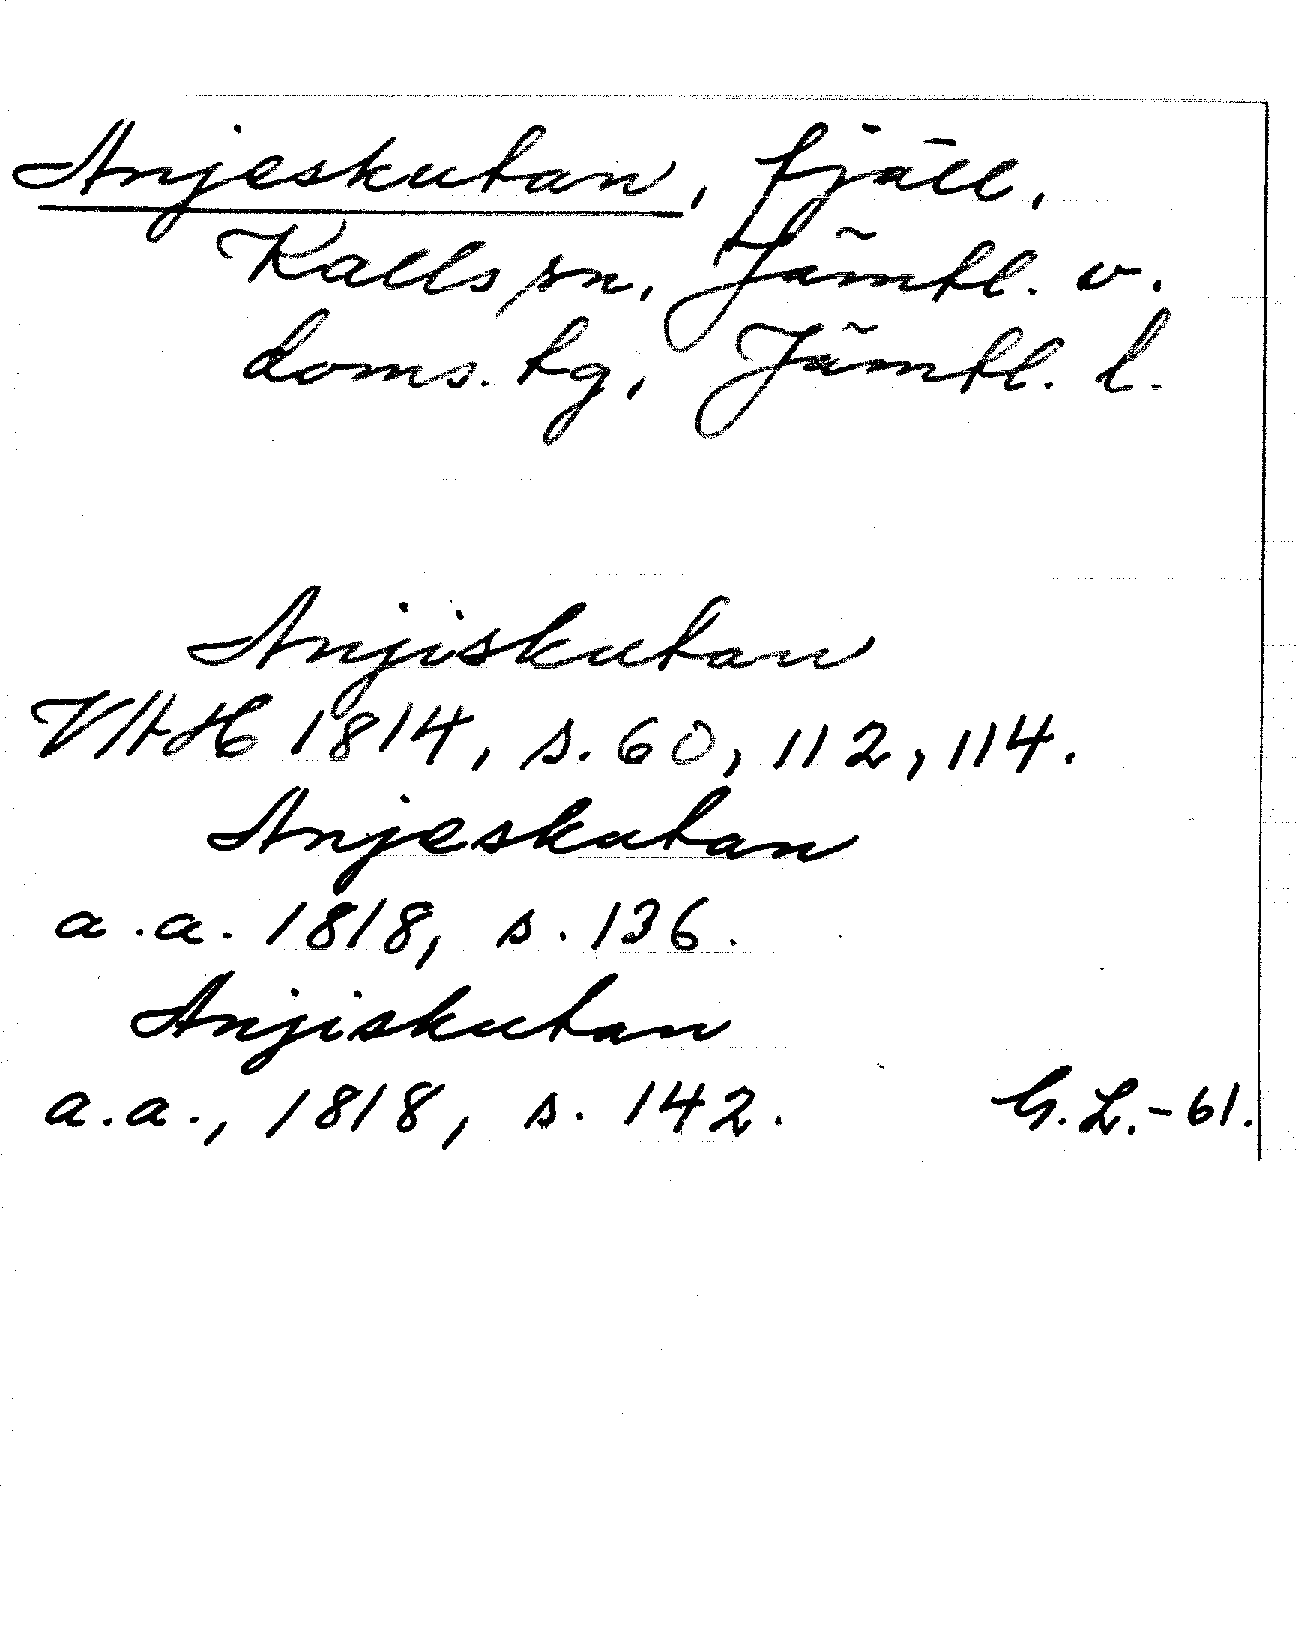 Anjeskutan, fjäll,
Kalls sn, Jämtl. v.
doms. tg, Jämtl. l.
Anjiskutan
VAH 1814, s. 60, 112, 114.
Anjeskutan
a.a. 1818, s. 136.
Anjiskutan
a.a., 1818, s. 142. G.L.-61.